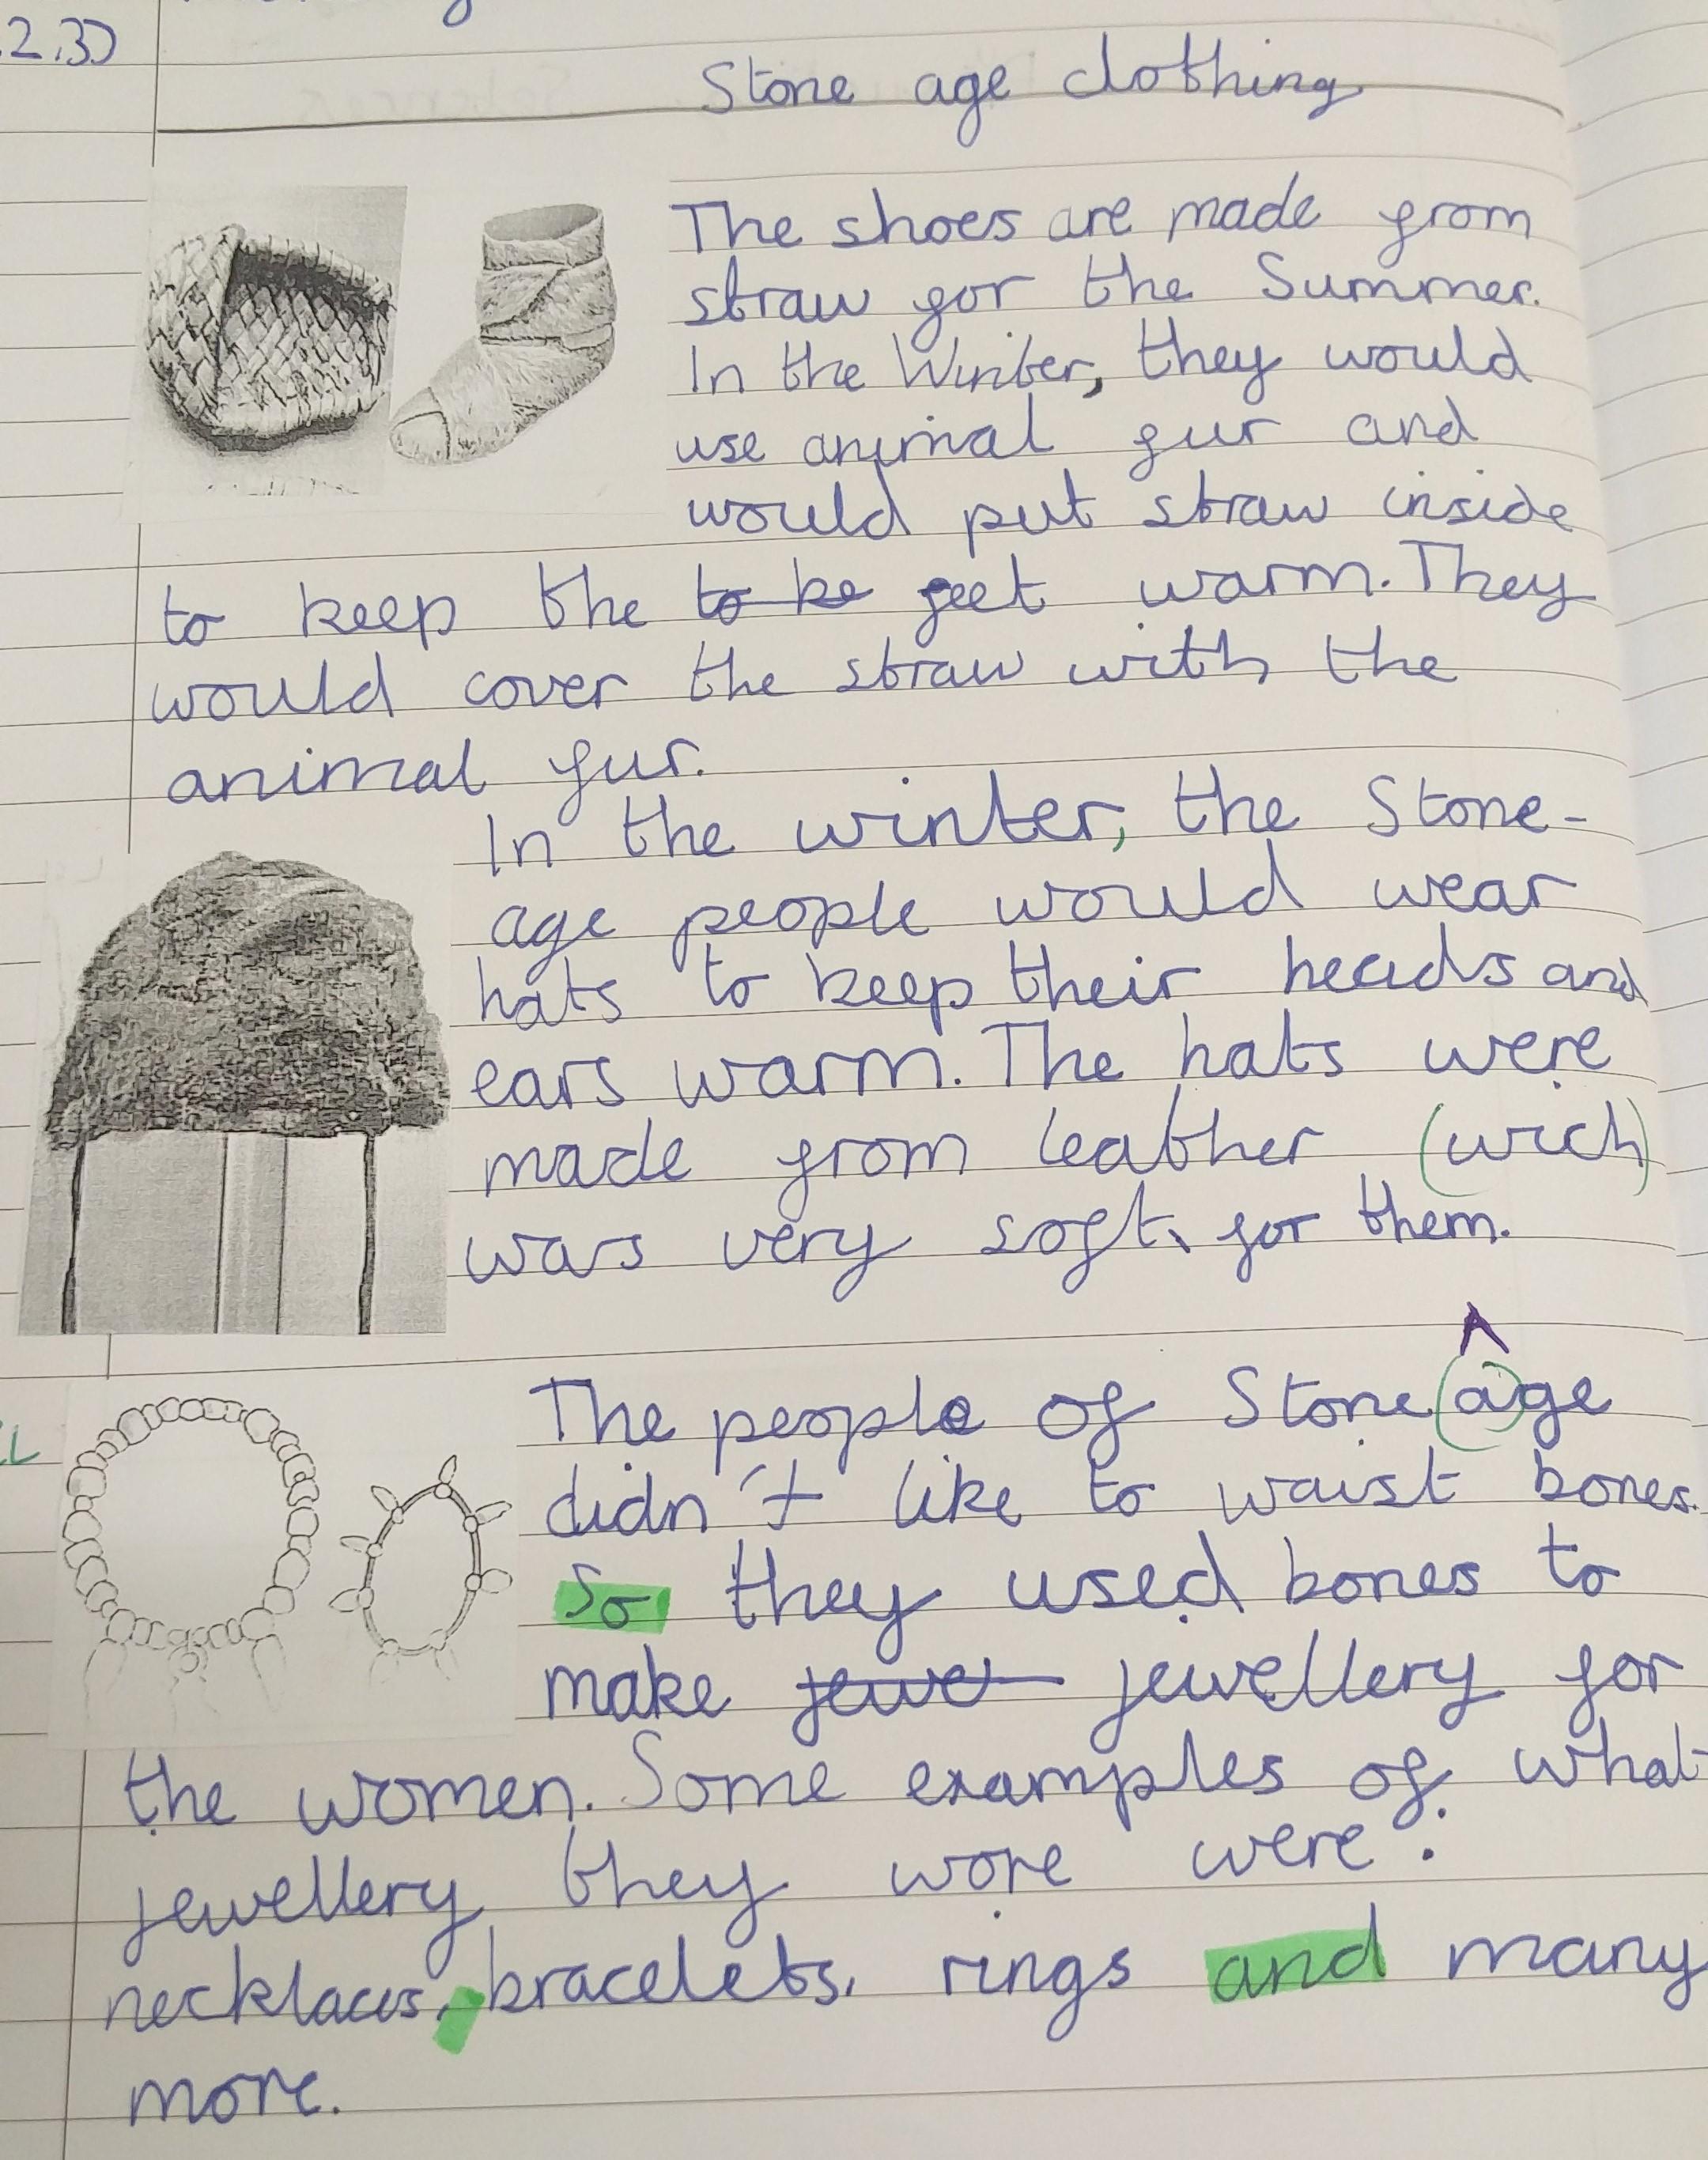 .2.3)
Stone age clothing
The shoes are made from
straw for the Summer.
In the Winter, they would
use animal fur and
would put straw inside
to keep the to ke feet warm. They
would cover the straw with the
animal fur.
In the winter, the Stone-
age people would wear
hats to keep their heads and
ears warm. The hats were
made from leather (wich)
was very soft, for them.
A
The people of Stone (a)ge
didn't like to waist bones.
So they used bones to
make jewel jewellery for
the women. Some examples of what
jewellery they wore were:
necklaces, bracelets, rings and many
more.